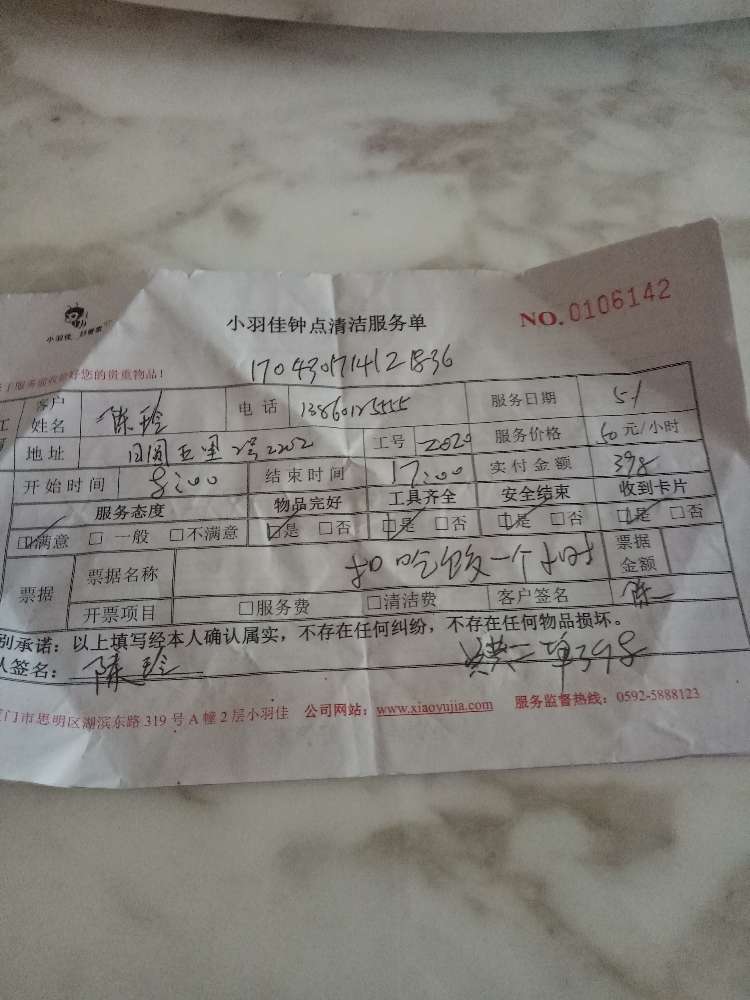 小羽佳
小羽佳钟点清洁服务单
NO. 0106142
1704301714121836
您的贵重物品！
客户姓名 陈玲 电话 服务日期 5/1
地址 2号2202 工号 2020 服务价格 50元/小时
开始时间 8:00 结束时间 17:00 实付金额 398
服务态度 物品完好 工具齐全 安全结束 收到卡片
☑满意 □一般 □不满意 ☑是 □否 ☑是 □否 ☑是 □否 ☑是 □否
票据 票据名称 扣吃饭一个小时 票据金额
开票项目 □服务费 □清洁费 客户签名 陈
别承诺：以上填写经本人确认属实，不存在任何纠纷，不存在任何物品损坏。
人签名：陈玲 共二单398
门市思明区湖滨东路319号A幢2层小羽佳 公司网站：www.xiaoyujia.com 服务监督热线：0592-5888123